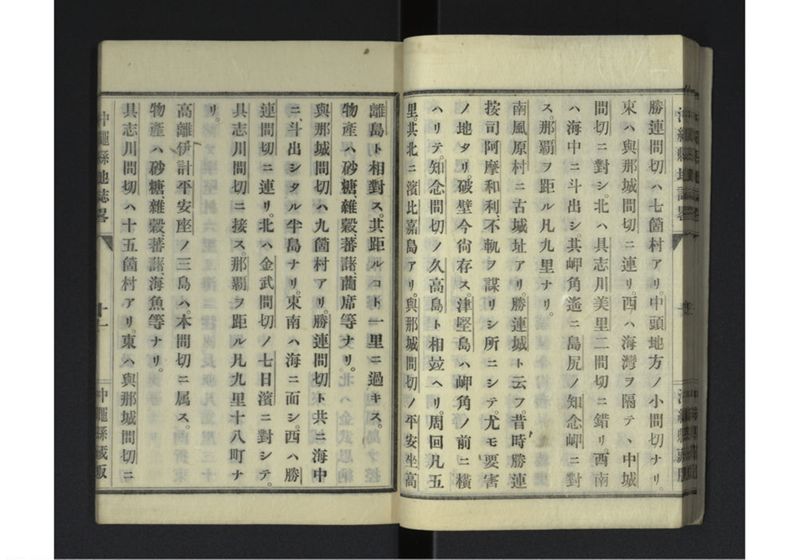 勝連間切ハ七箇村アリ。中頭地方ノ小間切ナリ。
東ハ與那城間切ニ連リ。西ハ海灣ヲ隔テ、中城
間切ニ對シ。北ハ具志川美里二間切ニ錯リ西南
ハ海中ニ斗出シ其岬角遙ニ島尻ノ知念岬ニ對
ス。那覇ヲ距ル凡九里ナリ。
南風原村ニ古城址アリ勝連城ト云フ。昔時勝連
按司阿摩和利、不軌ヲ謀リシ所ニシテ。尤モ要害
ノ地タリ。破壁今尙存ス津堅島ハ岬角ノ前ニ横
ハリテ。知念間切ノ久高島ト相竝ヘリ。周回凡五
里其北ニ濱比嘉島アリ。與那城間切ノ平安坐高
離島ト相對ス。其距ルコト一里ニ過キス。
物產ハ砂糖雜穀蕃藷藺席等ナリ。
與那城間切ハ九箇村アリ。勝連間切ト共ニ海中
ニ斗出シタル半島ナリ。東南ハ海ニ面シ。西ハ勝
連間切ニ連リ。北ハ金武間切ノ七日濱ニ對シテ。
具志川間切ニ接ス那覇ヲ距ル凡九里十八町ナ
リ。
高離伊計平安座ノ三島ハ。本間切ニ属ス。
物產ハ砂糖雜穀蕃藷海魚等ナリ。
具志川間切ハ十五箇村アリ。東ハ與那城間切ニ
沖繩縣地誌畧
十一
沖繩縣藏版